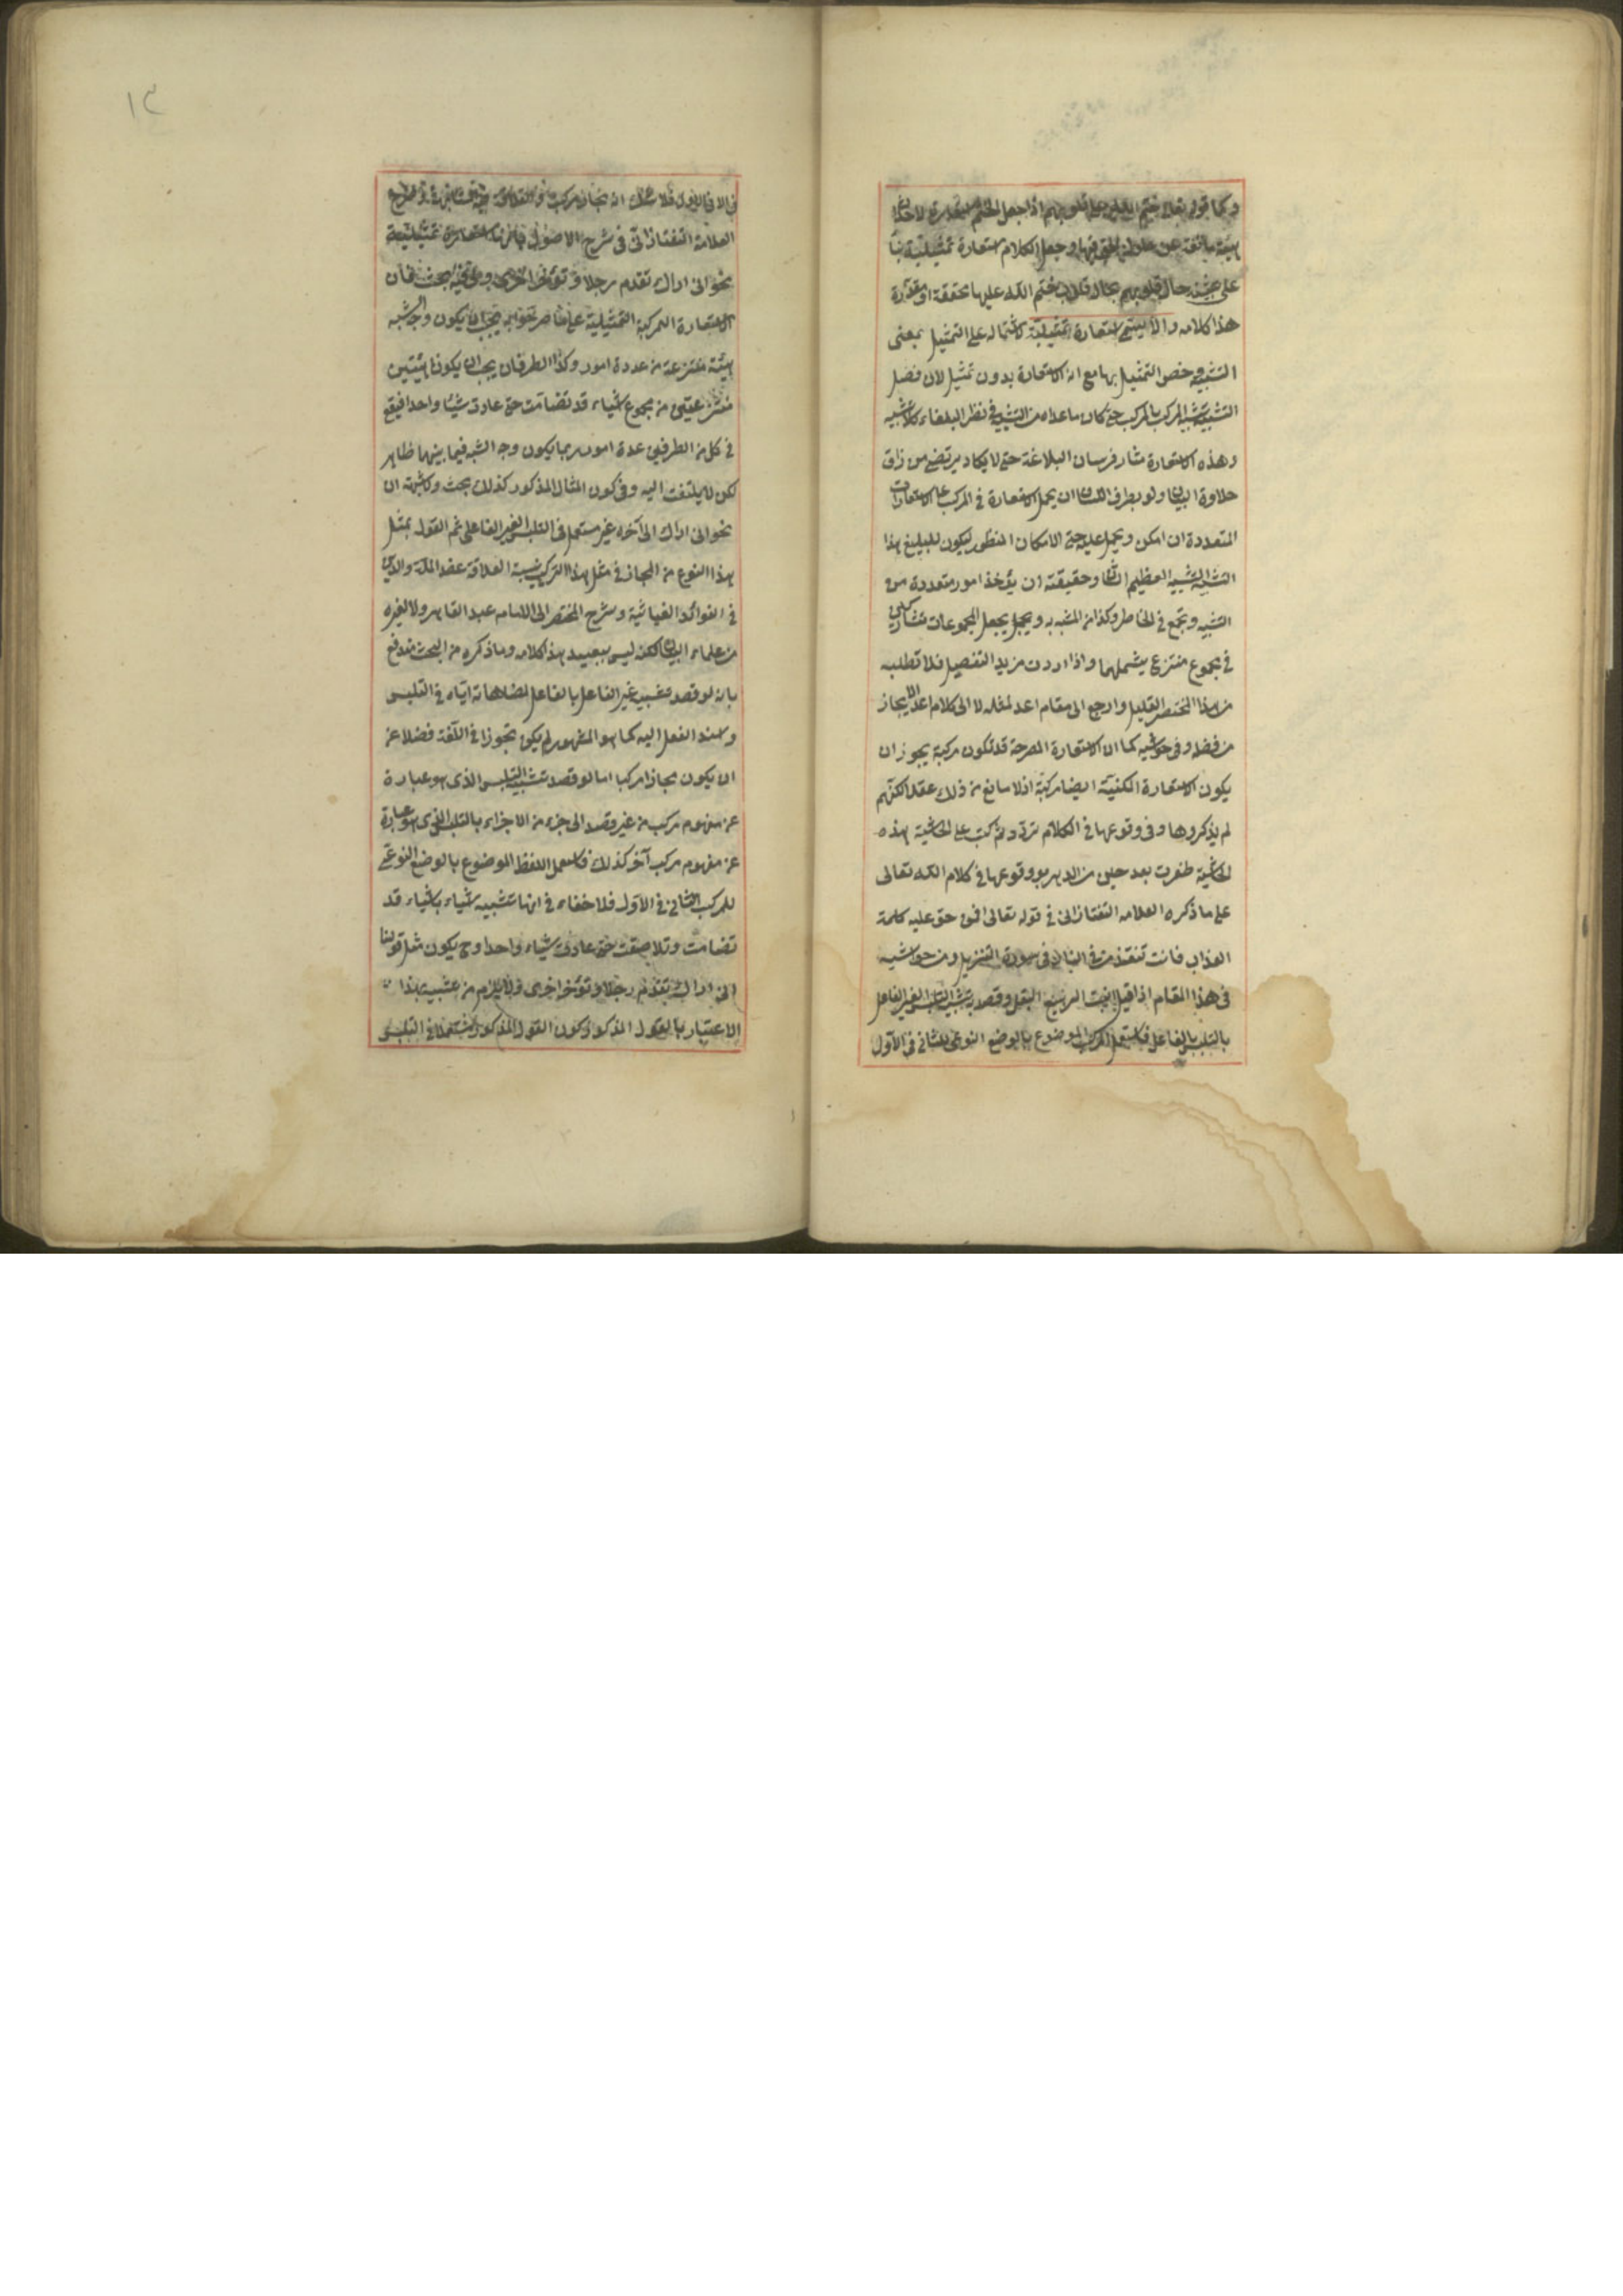 وكما قوله تعالى ختم الله على قلوبهم اذا جعل الختم استعارة لاحداث
هيئة مانعة عن خلوص الحق فيها وجعل الكلام استعارة تمثيلية بناء
على تشبيه حال قلوبهم بحال قلوب ختم الله عليها محققة او مقدرة
هذا كلامه والا يسمى استعارة تمثيلية لاشتماله على التمثيل بمعنى
التشبيه وخص التمثيل بها مع ان الاستعارة بدون تمثيل لان فضل
التشبيه تشبيه المركب بالمركب حتى كان ما عداه من التشبيه في نظر البلغاء كلا تشبيه
وهذه الاستعارة مثار فرسان البلاغة حتى لا يكاد يرتضى من ذاق
حلاوة البيان ولو بطرف اللسان ان يحمل الاستعارة في المركب على الاستعارات
المتعددة ان امكن ويحمل عليه حتى الامكان المنظور ليكون للبليغ هذا
التشبيه العظيم الشان وحقيقته ان يؤخذ امور متعددة من
المشبه وتجمع في الخاطر وكذا من المشبه به ويجعل المجموعان متشاركين
في مجموع منتزع يشملهما واذا اردت مزيد التفصيل فلا تطلبه
من هذا المختصر القليل وارجع الى مقام اعد لمثله لا الى كلام اعد للايجاز
من فضله وفي حواشيه كما ان الاستعارة المصرحة قد تكون مركبة يجوز ان
يكون الاستعارة المكنية ايضا مركبة اذ لا مانع من ذلك عقلا لكنهم
لم يذكروها وفي وقوعها في الكلام تردد ثم كتب على الحاشية هذه
الحاشية ظفرت بعد حين من الدهر بوقوعها في كلام الله تعالى
على ما ذكره العلامة التفتازاني في قوله تعالى افمن حق عليه كلمة
العذاب فانت تنقذ من في النار في سورة التنزيل ومن حواشيه
في هذا المقام اذا قيل انبت الربيع البقل وقصد تشبيه التلبس الغير الفاعل
بالتلبس بالفاعل فاستعمل المركب الموضوع بالوضع النوعي للثاني في الاول
في الاول فلا شك انه مجاز مركب
العلامة التفتازاني في شرح الاصول بانه استعارة تمثيلية
نحو اني اراك تقدم رجلا وتؤخر اخرى وفيه بحث فان
الاستعارة المركبة التمثيلية على ما صرحوا به يجب ان يكون وجه الشبه
هيئة منتزعة من عدة امور وكذا الطرفان يجب ان يكونا هيئتين
منتزعتين من مجموع اشياء قد تضامت حتى عادت شيئا واحدا فيقع
في كل من الطرفين عدة امور ربما يكون وجه الشبه فيما بينها ظاهر
لكن لا يلتفت اليه وفي كون المثال المذكور كذلك بحث ولا شبهة ان
نحو اني اراك الى آخره غير مستعمل في التلبس الغير الفاعلي ثم القول بمثل
هذا النوع من المجاز في مثل هذا التركيب نسبة العلامة عضد الملة والدين
في الفوائد الغياثية وشرح المختصر الى الامام عبد القاهر ولا لغيره
من علماء البيان لكنه ليس ببعيد هذا كلامه وما ذكره من البحث مندفع
بانه لو قصد تشبيه غير الفاعل بالفاعل لمضاهاته اياه في التلبس
واسند الفعل اليه كما هو المشهور لم يكن تجوزا في اللغة فضلا عن
ان يكون مجازا مركبا اما لو قصد تشبيه التلبس الذى هو عبارة
عن مفهوم مركب من غير قصد الى جزء من الاجزاء بالتلبس الذى هو عبارة
عن مفهوم مركب آخر كذلك فاستعمل اللفظ الموضوع بالوضع النوعى
للمركب الثاني في الاول فلا خفاء في انها تشبيه اشياء باشياء قد
تضامت وتلاصقت حتى عادت شيئا واحدا وح يكون مثل قولنا
انى اراك تقدم رجلا وتؤخر اخرى ولا يلزم من تشبيه هذا
الاعتبار بالقول المذكور كون القول المذكور مستعملا في التلبس